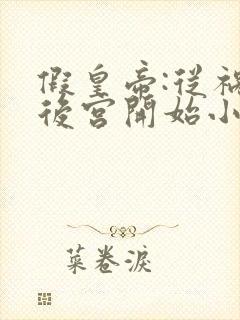 假皇帝:從禍
後宮開始小
菜卷淚